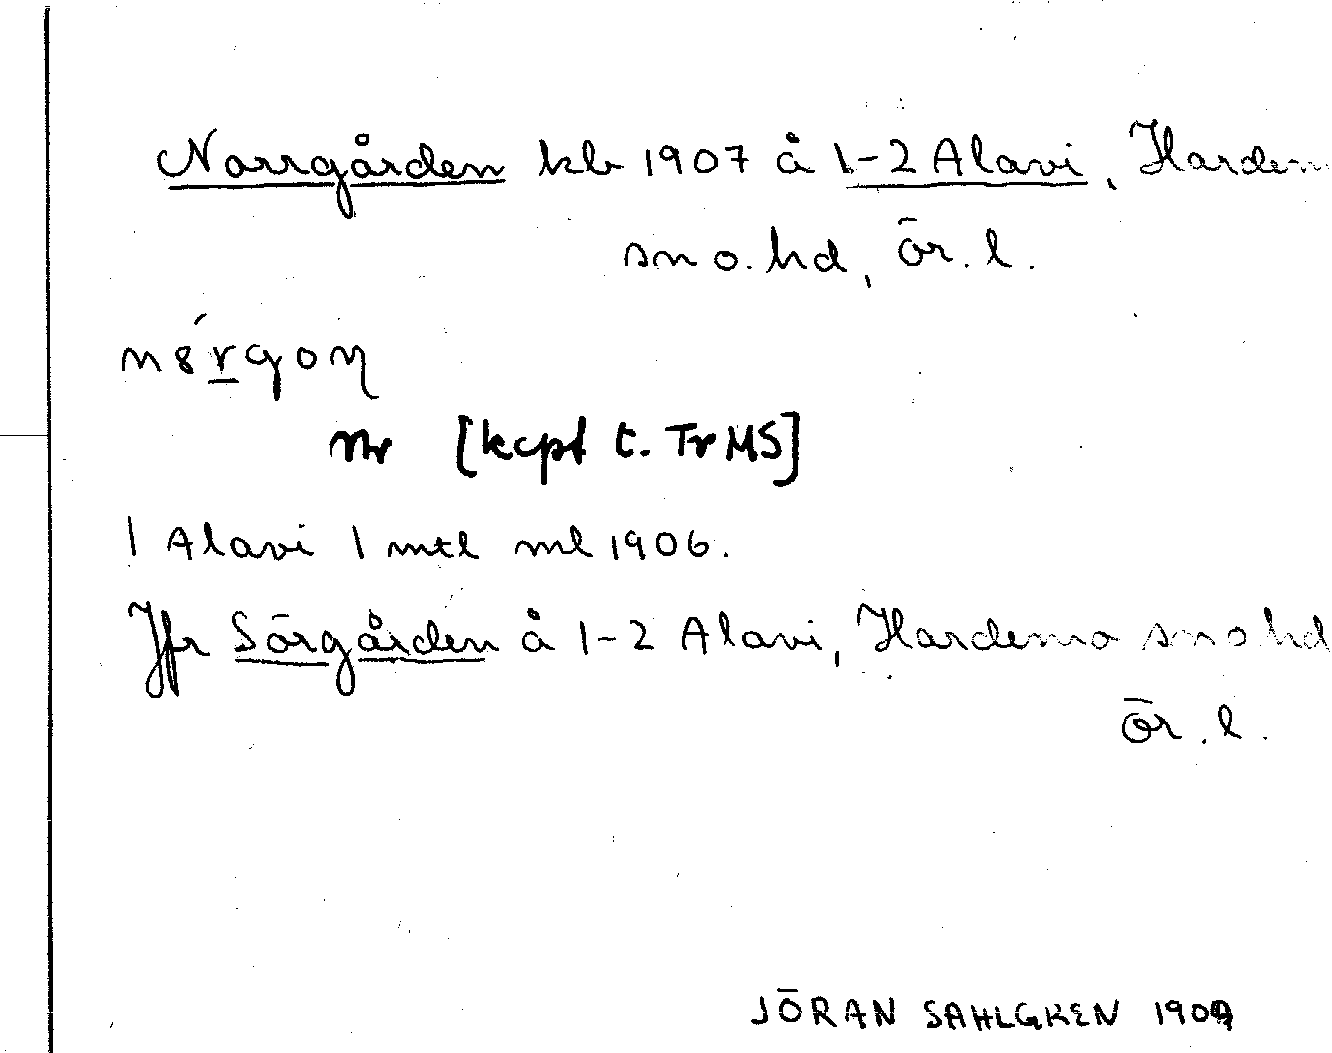 Norrgården kb 1907 å 1-2 Alavi, Hardem
sn o. hd, ör. l.
n8́rgoŋ
nr [kcpt t. TrMS]
1 Alavi 1 mtl ml 1906.
Jfr Sörgården å 1-2 Alavi, Hardemo sn o hd
ör. l.
JÖRAN SAHLGREN 1909